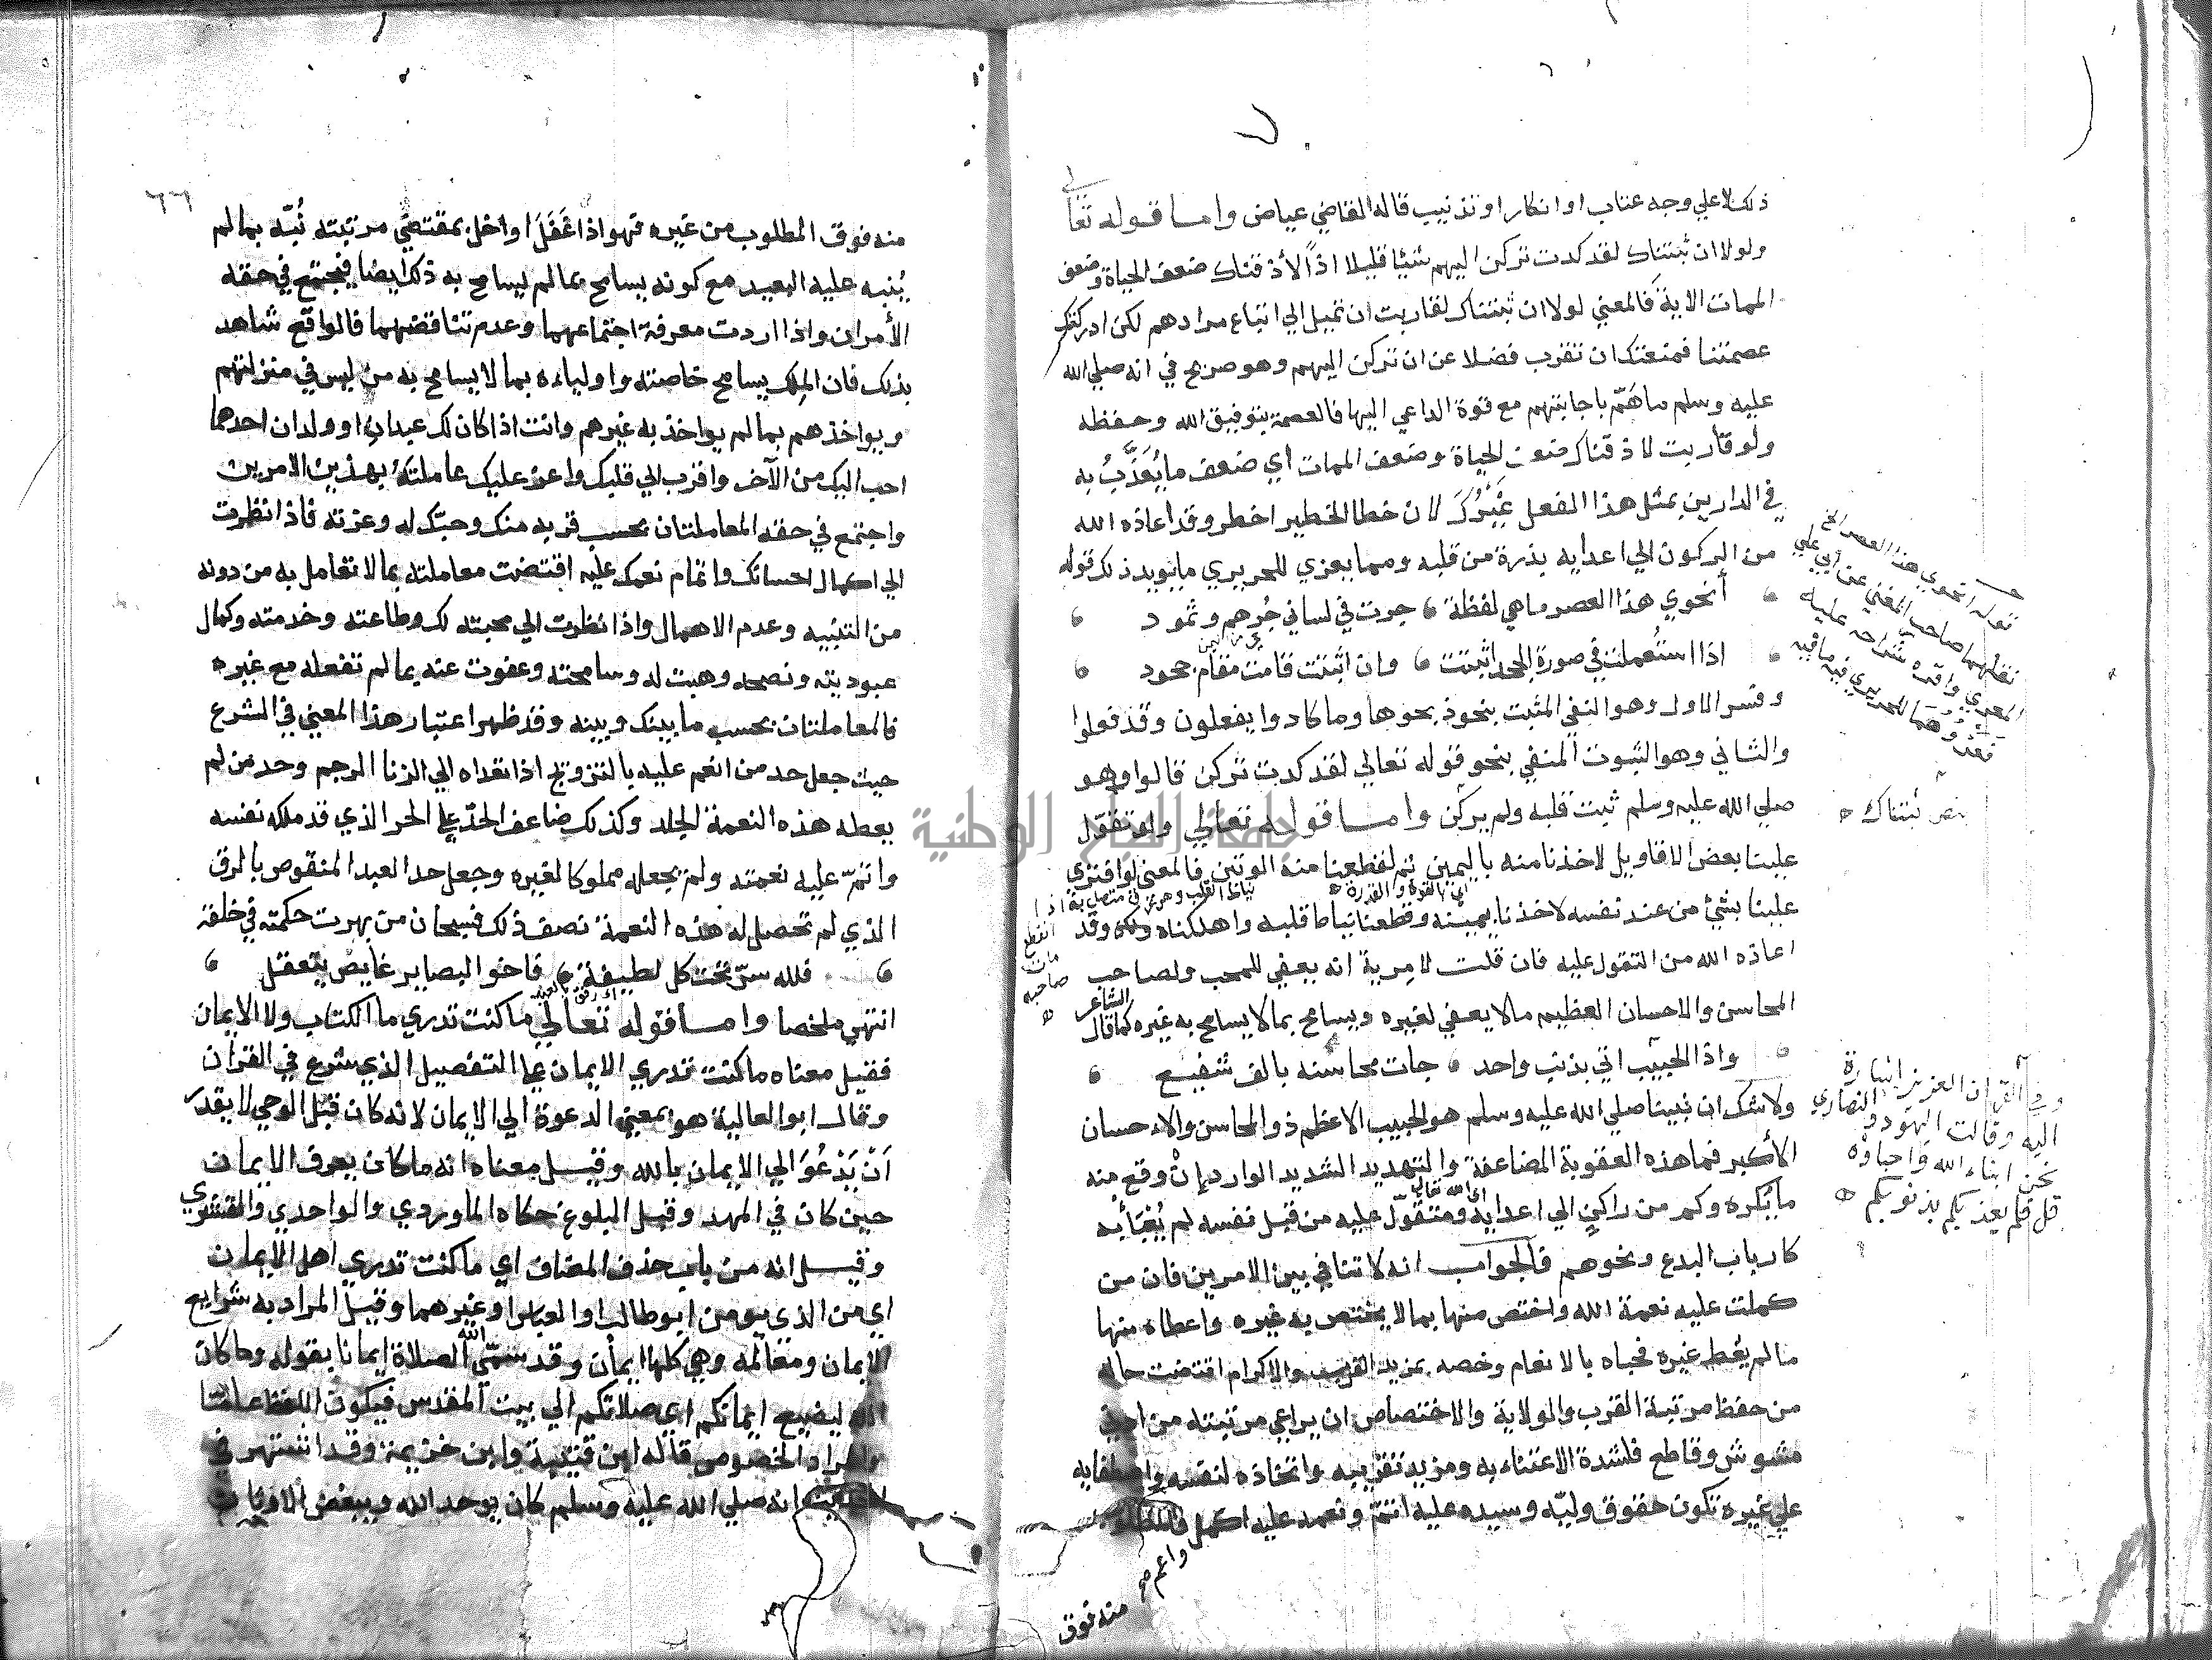 ذلك لا علي وجه عتاب او انكار او تذنيب قاله القاضي عياض واما قوله تعالي
ولولا ان ثبتناك لقد كدت تركن اليهم شيئا قليلا اذاً لأذقناك ضعف الحياة وضعف
الممات الاية فالمعني لولا ان ثبتناك لقاربت ان تميل الي اتباع مرادهم لكن ادركتك
عصمتنا فمنعتك ان تقرب فضلا عن ان تركن اليهم وهو صريح في انه صلي الله
عليه وسلم ما هَمّ باجابتهم مع قوة الداعي اليها فالعصمة بتوفيق الله وحفظه
ولو قاربت لاذقناك ضعف الحياة وضعف الممات اي ضعف ما يُعَذَّبُ به
في الدارين بمثل هذا الفعل غَيْرُكَ لان خطا الخطير اخطر وقد اعاذه الله
من الركون الي اعدايه بذرة من قلبه ومما يعزي للحريري ما يويد ذلك قوله
أنحوي هذا العصر ما هي لفظة جرت في لساني جُرهم وثمود
اذا استُعملت في صورة الجحد اثبتت وان اثبتت قامت مقام جحود
وفسر الاول وهو النفي المثبت بنحو فذبحوها وما كادوا يفعلون وقد فعلوا
والثاني وهو الثبوت المنفي بنحو قوله تعالي لقد كدت تركن قالوا وهو
صلي الله عليه وسلم ثبت قلبه ولم يركن واما قوله تعالي ولو تقوّل
علينا بعض الاقاويل لاخذنا منه باليمين ثم لقطعنا منه الوتين فالمعني لو افتري
اي بالقوة والقدرة
نياط القلب وهو عرق متصل به اذا
انقطع
مات
صاحبه
علينا بشئ من عند نفسه لاخذنا بيمينه وقطعنا نياط قلبه واهلكناه ولكن وقد
اعاذه الله من التقول عليه فان قلت لا مرية انه يعفي للمحب ولصاحب
المحاسن والاحسان العظيم ما لا يعفي لغيره ويسامح بما لا يسامح به غيره كما قال الشاعر
واذا الحبيب اتي بذنب واحد جات محاسنه بالف شفيع
ولا شك ان نبينا صلي الله عليه وسلم هو الحبيب الاعظم ذو المحاسن والاحسان
الأكبر فما هذه العقوبة المضاعفة والتهديد الشديد الوارد إنْ وقع منه
ما يُكره وكم من راكن الي اعدايه ومتقوّل عليه من قبل نفسه لم يُعْبَأ به
اي الله تعالي
كارباب البدع ونحوهم فالجواب انه لا تنافي بين الامرين فان من
كملت عليه نعمة الله واختص منها بما لا يختص به غيره واعطاه منها
ما لم يُعط غيره فحباه بالانعام وخصه بمزيد القرب والاكرام اقتضت حاله
من حفظ مرتبة القرب والولاية والاختصاص ان يراعي مرتبته من ادني
مشوش وقاطع فلشدة الاعتناء به ومزيد تقريبه واتخاذه لنفسه واصطفايه
علي غيره تكون حقوق وليّه وسيده عليه اتمّ ونعمه عليه اكمل فالمطلوب
واعم صح
منه فوق
قوله انحوي هذا العصر الخ
نقلهما صاحب المغني عن ابي علي
المعري واقره شراحه عليه
فعزْوُهما للحريري فيه ما فيه
نص ثبتناك
وفي القران العزيز اشارة
اليه وقالت اليهود والنصاري
نحن ابناء الله واحباؤه
قل فلم يعذبكم بذنوبكم
٦٦
منه فوق المطلوب من غيره فهو اذا غَفَلَ او اخل بمقتضي مرتبته نُبّه بما لم
يُنبه عليه البعيد مع كونه يسامح بما لم يسامح به ذلك ايضا فيجتمع في حقه
الأمران واذا اردت معرفة اجتماعهما وعدم تناقضهما فالواقع شاهد
بذلك فان المِلك يسامح خاصته واولياءه بما لا يسامح به من ليس في منزلتهم
ويواخذهم بما لم يواخذ به غيرهم وانت اذا كان لك عبدان او ولدان احدهما
احب اليك من الآخر واقرب الي قلبك واعز عليك عاملتهُ بهذين الامرين
واجتمع في حقه المعاملتان بحسب قربه منك وحبّك له وعزته فاذا نظرت
الي اكمال احسانك واتمام نعمك عليه اقتضت معاملته بما لا تعامل به من دونه
من التنبيه وعدم الاهمال واذا نظرت الي محبته لك وطاعته وخدمته وكمال
عبوديته ونصحه وهبت له وسامحته وعفوت عنه بما لم تفعله مع غيره
فالمعاملتان بحسب ما بينك وبينه وقد ظهر اعتبار هذا المعني في الشرع
حيث جعل حد من انعم عليه بالتزوج اذا تعداه الي الزنا الرجم وحد من لم
يعطه هذه النعمة الجلد وكذلك ضاعف الحدّ علي الحر الذي قد ملكه نفسه
واتمّ عليه نعمته ولم يجعله مملوكا لغيره وجعل حد العبد المنقوص بالرق
الذي لم تحصل له هذه النعمة نصف ذلك فسبحان من بهرت حكمته في خلقه
فلله سرّ تحت كل لطيفة فاخو البصاير غايص يتعقل
انتهي ملخصا واما قوله تعالي ما كنت تدري ما الكتاب ولا الايمان
فقيل معناه ما كنت تدري الايمان علي التفصيل الذي شرع في القران
وقال ابو العالية هو بمعني الدعوة الي الايمان لانه كان قبل الوحي لا يقدر
اَنْ يَدْعُوَ الي الايمان بالله وقيل معناه انه ما كان يعرف الايمان
حين كان في المهد وقبل البلوغ حكاه الماوردي والواحدي والقشيري
وقيل انه من باب حذف المضاف اي ما كنت تدري اهل الايمان
اي من الذي يومن ابو طالب او العباس او غيرهما وقيل المراد به شرايع
الايمان ومعالمه وهي كلها ايمان وقد سمّي الله الصلاة ايمانا بقوله وما كان
الله ليضيع ايمانكم اي صلاتكم الي بيت المقدس فيكون اللفظ عاما
والمراد الخصوص قاله ابن قتيبة وابن خزيمة وقد اشتهر في
الحديث انه صلي الله عليه وسلم كان يوحد الله ويبغض الاوثان
جامعة النجاح الوطنية